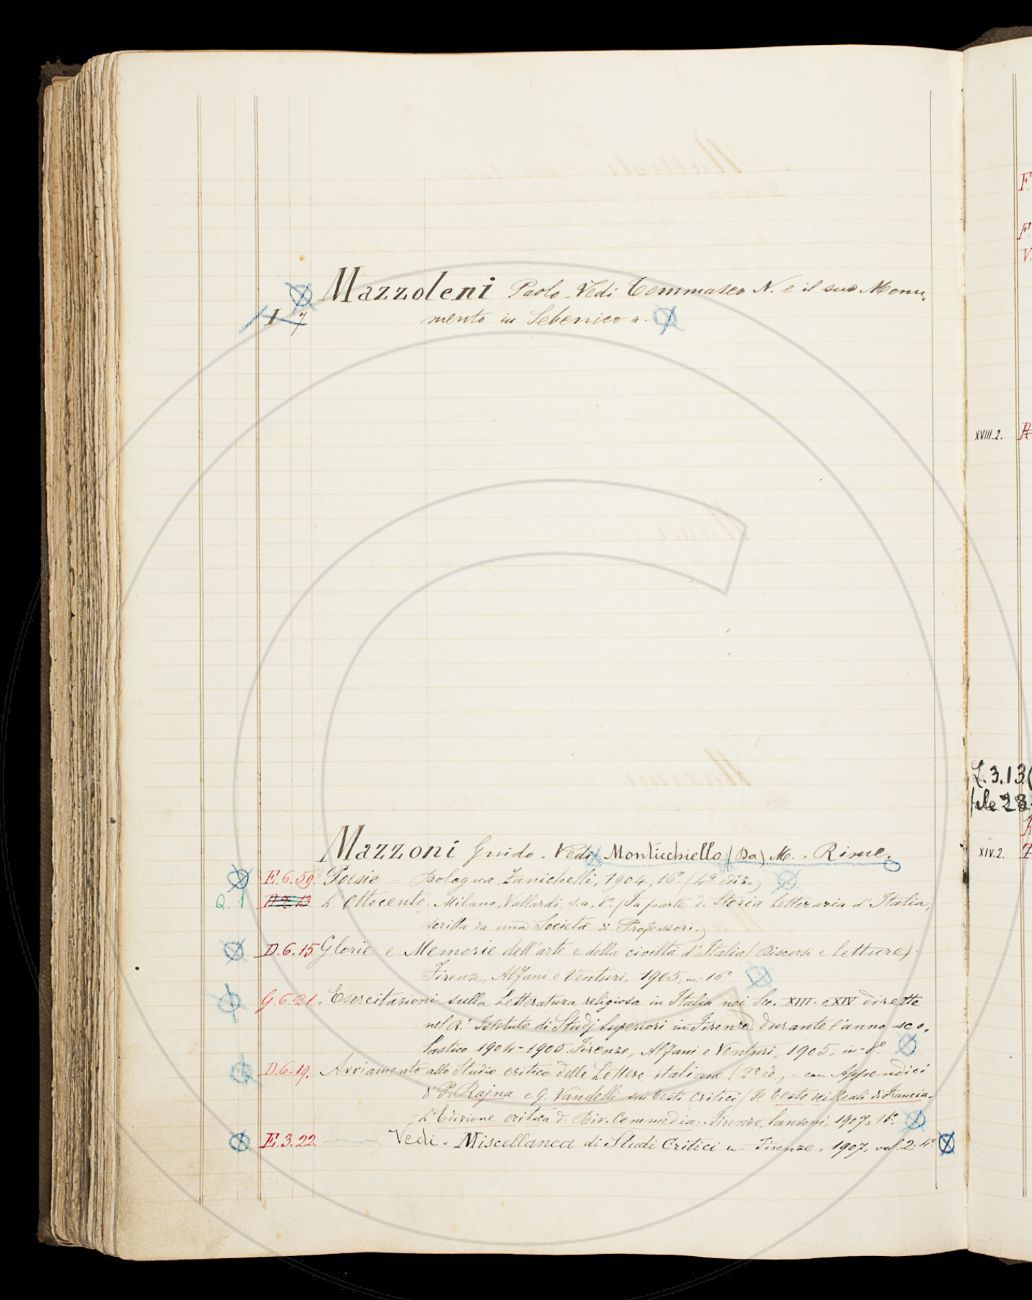 Mazzoleni Paolo Vedi Tommaseo N. e il suo Monu-
I 7 mento in Sebenico
Mazzoni Guido. Vedi Montichiello (Da) M. - Rime.
E.6.59. Poesie - Bologna, Zanichelli, 1904, 16° (4ª Ediz.)
Q. 1 L'Ottocento. Milano, Vallardi, s.a. 8° (Fa parte d. Storia Letteraria d'Italia,
scritta da una Società di Professori.)
D.6.15 Glorie e Memorie dell'arte e della civiltà d'Italia (Discorsi e letture).
Firenze, Alfani e Venturi, 1905, in-16°
G.6.21. Esercitazioni sulla Letteratura religiosa in Italia nei Sec. XIII. e XIV dirette
nel R.° Istituto di Studj Superiori in Firenze durante l'anno sco-
lastico 1904-1905. Firenze, Alfani e Venturi, 1905, in-8°
D.6.19. Avviamento allo Studio critico delle Lettere italiane (2ª ed., con Appendici
di P. Rajna e G. Vandelli sui testi critici, Reali di Francia.
L'Edizione critica d. Div. Commedia. Firenze, Sansoni, 1907, 16°.
E.3.22. Vedi - Miscellanea di Studi Critici - Firenze, 1907, vol. 2. 4°
XVIII.2.
L.3.13
XIV.2.